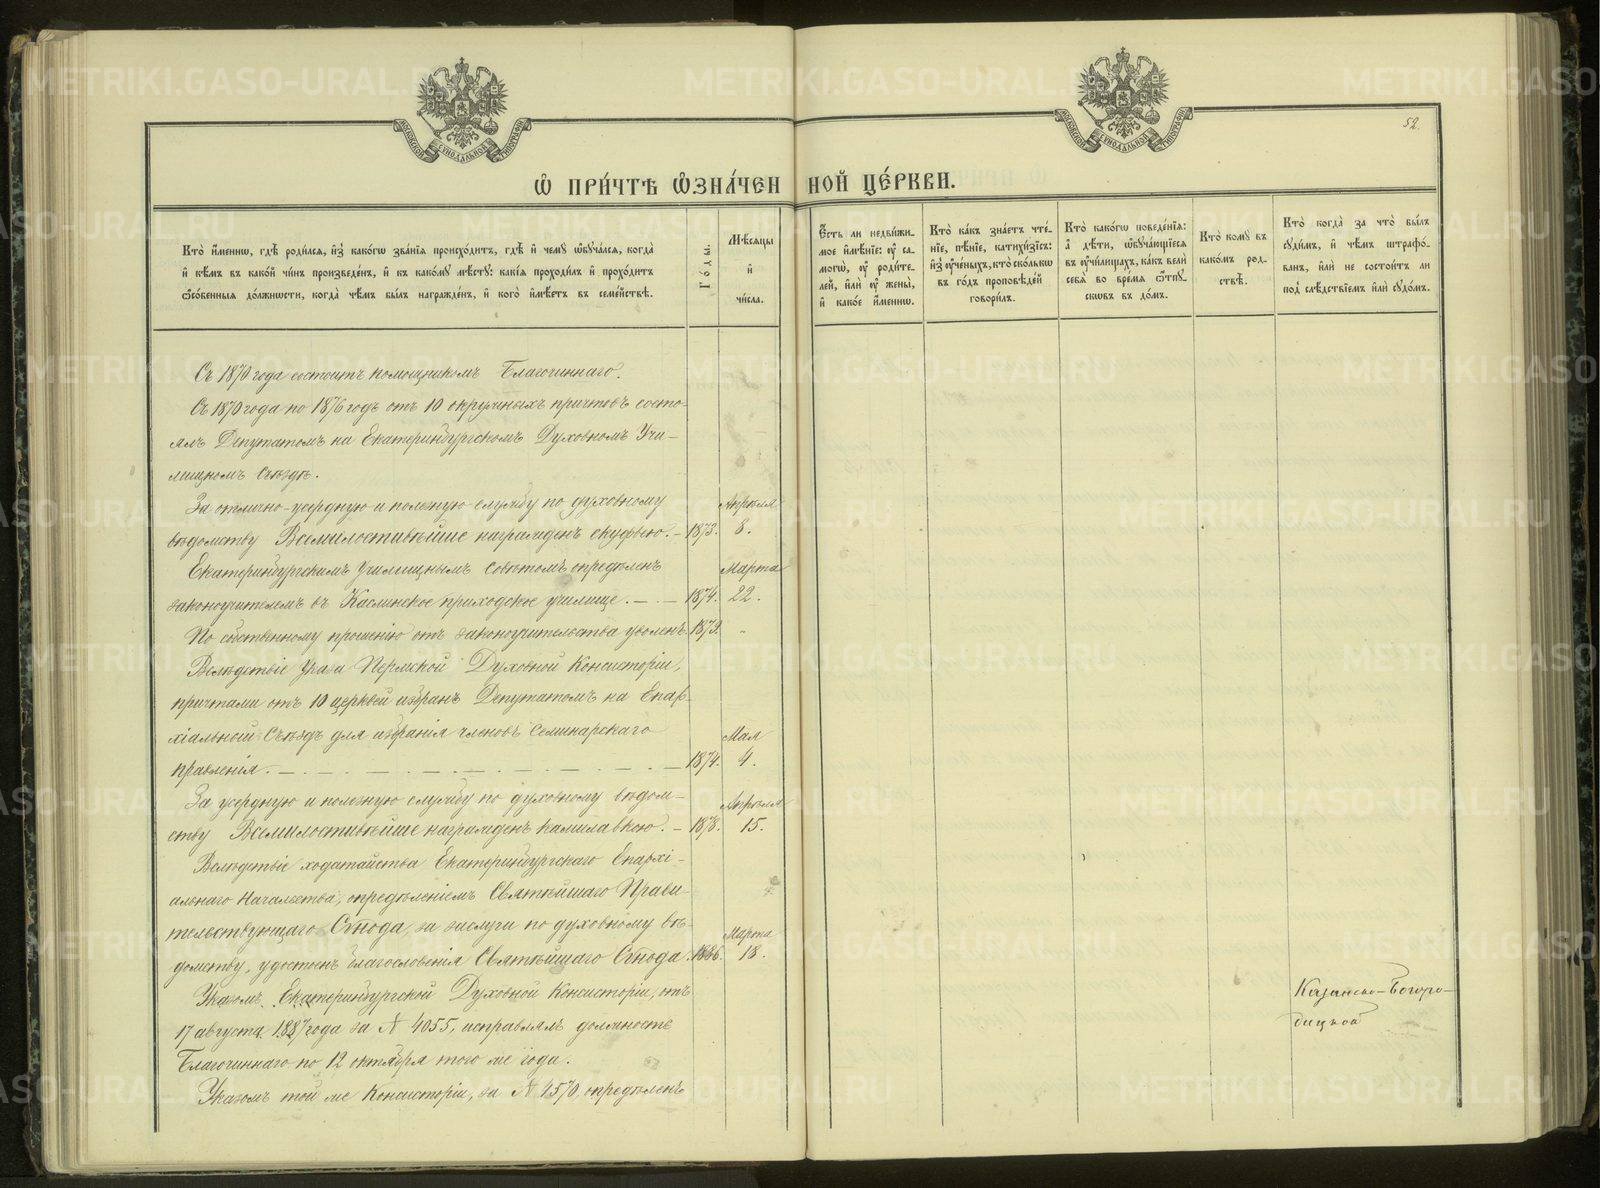 52.
Ѡ ПРИ́ЧТѢ ѠЗНА́ЧЕННОЙ ЦЕ́РКВИ.
Кто̀ и҆́менно, гдѣ̀ роди́лся, и҆з̾ како́гѡ зва́нїѧ происхо́дитъ, гдѣ̀ и҆ чемꙋ̀ ѡ҆бꙋча́лся, когда̀
и҆ кѣ́мъ въ како́й чи́нъ произведе́нъ, и҆ къ како́мꙋ мѣ́стꙋ: какі̑ѧ проходи́лъ и҆ прохо́дитъ
ѻ҆со́бенныѧ до́лжности, когда̀ чѣ́мъ бы́лъ награжде́нъ, и҆ кого̀ и҆мѣ́етъ въ семе́йствѣ.
Го́ды.
Мѣ́сяцы
и҆
чи́сла.
Є҆́сть ли недви́жи-
мое и҆мѣ́нїе: ᲂу҆ са-
могѡ̀, ᲂу҆ роди́те-
лей, и҆лѝ ᲂу҆ жены̀,
и҆ како́е и҆́менно.
Кто̀ ка́къ зна́етъ чте́-
нїе, пѣ́нїе, катихи́зїсъ:
и҆з̾ ᲂу҆че́ныхъ, кто ско́лькѡ
въ го́дъ проповѣ́дей
говори́лъ.
Кто̀ како́гѡ поведе́нїѧ:
а҆̀ дѣ́ти, ѡ҆бꙋча́ющїесѧ
въ ᲂу҆чи́лищахъ, ка́къ велѝ
себѧ̀ во вре́мѧ ѿпꙋ-
сковъ въ до́мъ.
Кто̀ комꙋ̀ въ
како́мъ род-
ствѣ̀.
Кто̀ когда̀ за что̀ бы́лъ
сꙋди́мъ, и҆ чѣ́мъ штрафо́-
ванъ, и҆лѝ не состои́тъ ли
под̾ слѣ́дствїемъ и҆лѝ сꙋдо́мъ.
Съ 1870 года состоитъ помощникомъ Благочиннаго.
Съ 1870 года по 1876 годъ отъ 10 окружныхъ причтовъ состо-
ялъ Депутатомъ на Екатеринбургскомъ Духовномъ Учи-
лищномъ Съѣздѣ.
За отлично-усердную и полезную службу по духовному Апрѣля
вѣдомству Всемилостивѣйше награжденъ скуфьею. – 1873. 8.
Екатеринбургскимъ Училищнымъ Совѣтомъ опредѣленъ Марта
законоучителемъ въ Каслинское приходское училище. – . – 1874. 22.
По собственному прошенію отъ законоучительства уволенъ. 1879. "
Вслѣдствіе Указа Пермской Духовной Консисторіи,
причтами отъ 10 церквей избранъ Депутатомъ на Епар-
хіальный Съѣздъ для избранія членовъ Семинарскаго Мая
правленія. – . – . – . – 1874. 4.
За усердную и полезную службу по духовному вѣдом- Апрѣля
ству Всемилостивѣйше награжденъ камилавкою. – 1878. 15.
Вслѣдствіе ходатайства Екатеринбургскаго Епархі-
альнаго Начальства, опредѣленіемъ Святѣйшаго Прави-
тельствующаго Сѵнода, за заслуги по духовному вѣ- Марта
домству, удостоенъ благословенія Святѣйшаго Сѵнода. 1886. 18.
Указомъ Екатеринбургской Духовной Консисторіи, отъ
17 августа 1887 года за № 4055, исправлялъ должность
Благочиннаго по 12 октября того же года.
Указомъ той же Консисторіи, за № 4570, опредѣленъ
Казанско-Богоро-
дицкой